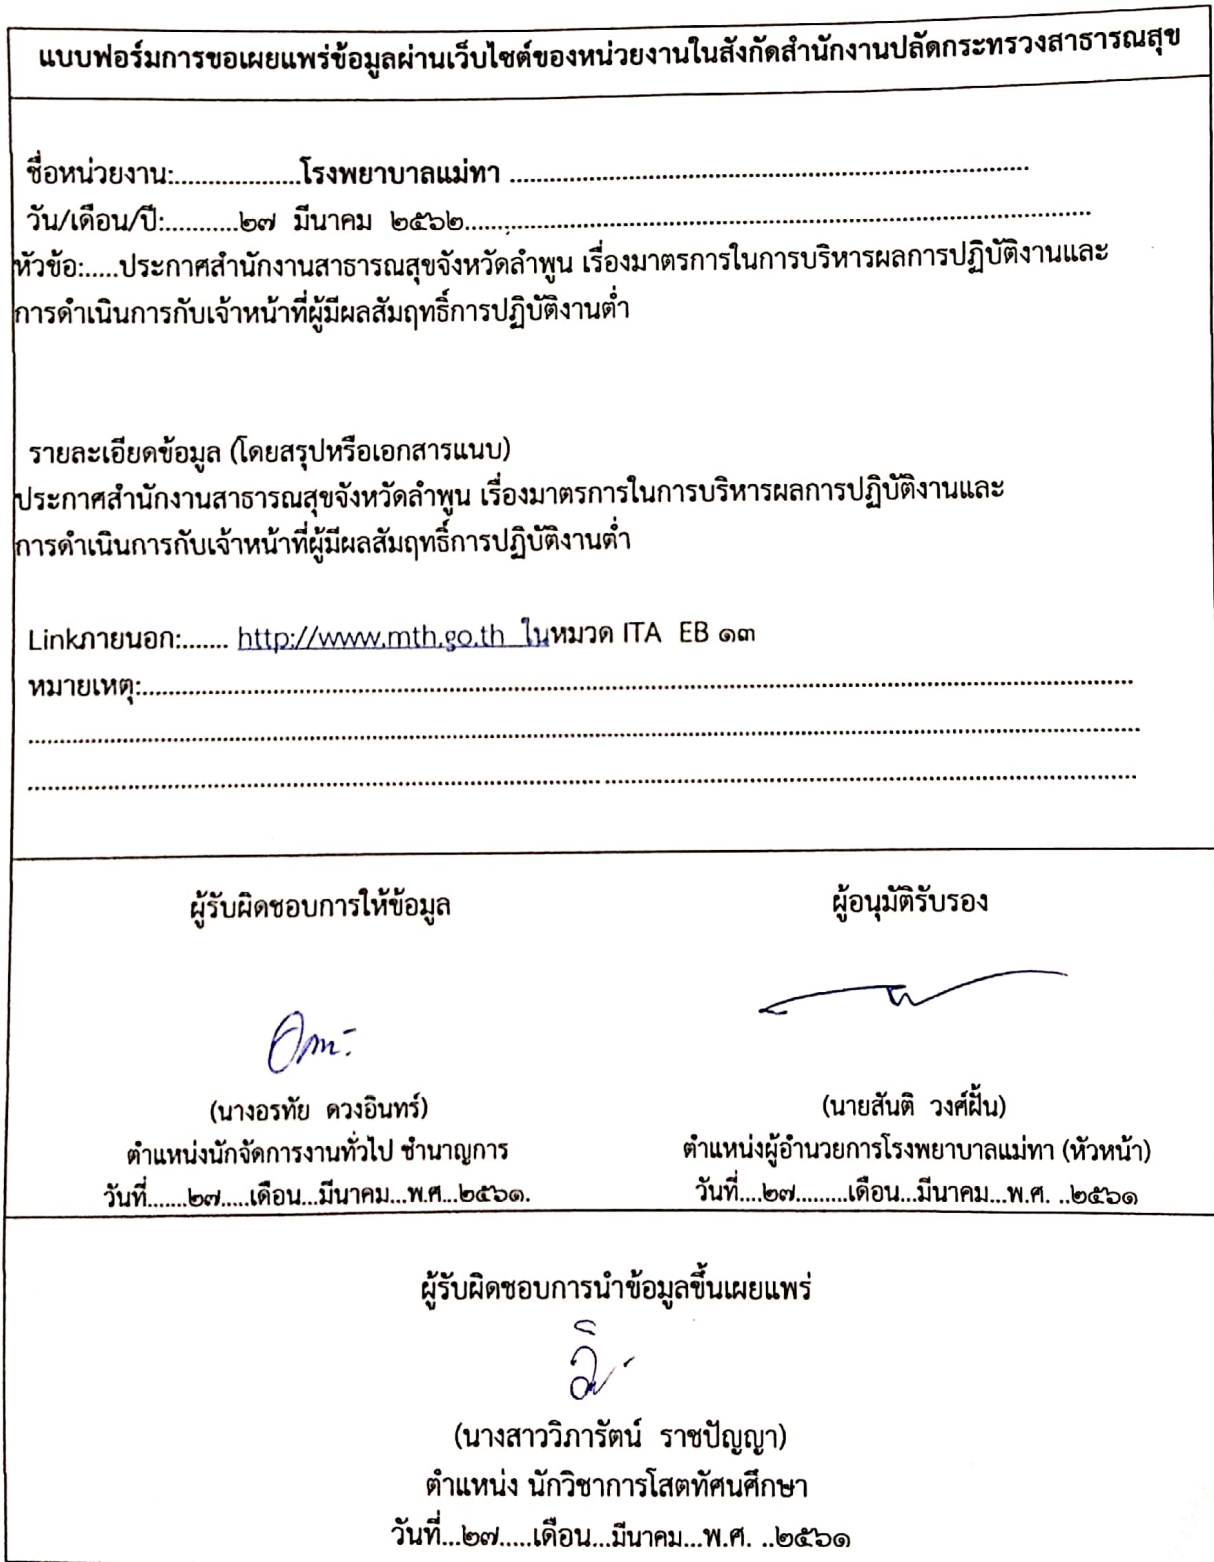 แบบฟอร์มการขอเผยแพร่ข้อมูลผ่านเว็บไซต์ของหน่วยงานในสังกัดสำนักงานปลัดกระทรวงสาธารณสุข
ชื่อหน่วยงาน:...................โรงพยาบาลแม่ทา ................................................................................
วัน/เดือน/ปี:...........๒๗ มีนาคม ๒๕๖๒................................................................................................
หัวข้อ:.....ประกาศสำนักงานสาธารณสุขจังหวัดลำพูน เรื่องมาตรการในการบริหารผลการปฏิบัติงานและ
การดำเนินการกับเจ้าหน้าที่ผู้มีผลสัมฤทธิ์การปฏิบัติงานต่ำ
รายละเอียดข้อมูล (โดยสรุปหรือเอกสารแนบ)
ประกาศสำนักงานสาธารณสุขจังหวัดลำพูน เรื่องมาตรการในการบริหารผลการปฏิบัติงานและ
การดำเนินการกับเจ้าหน้าที่ผู้มีผลสัมฤทธิ์การปฏิบัติงานต่ำ
Linkภายนอก:....... http://www.mth.go.th ในหมวด ITA EB ๑๓
หมายเหตุ:.......................................................................................................................................................
ผู้รับผิดชอบการให้ข้อมูล
ผู้อนุมัติรับรอง
(นางอรทัย ดวงอินทร์)
(นายสันติ วงศ์ฝั้น)
ตำแหน่งนักจัดการงานทั่วไป ชำนาญการ
ตำแหน่งผู้อำนวยการโรงพยาบาลแม่ทา (หัวหน้า)
วันที่.......๒๗.....เดือน...มีนาคม...พ.ศ...๒๕๖๑.
วันที่....๒๗.........เดือน...มีนาคม...พ.ศ. ..๒๕๖๑
ผู้รับผิดชอบการนำข้อมูลขึ้นเผยแพร่
(นางสาววิภารัตน์ ราชปัญญา)
ตำแหน่ง นักวิชาการโสตทัศนศึกษา
วันที่...๒๗.....เดือน...มีนาคม...พ.ศ. ..๒๕๖๑